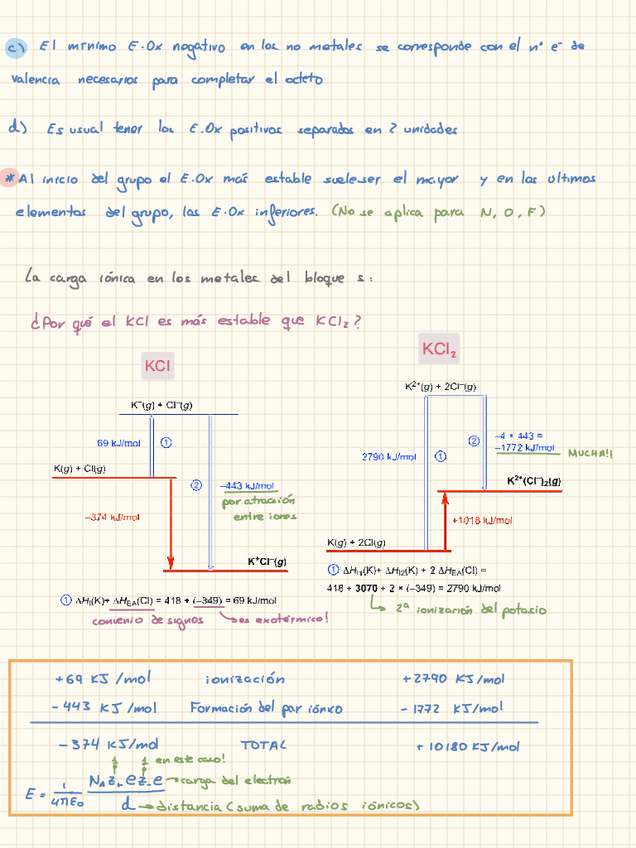 c) El mínimo E.Ox negativo en los no metales se corresponde con el nº e⁻ de
valencia necesarios para completar el octeto
d) Es usual tener los E.Ox positivos separados en 2 unidades
* Al inicio del grupo el E.Ox más estable suele ser el mayor y en los ultimos
elementos del grupo, los E.Ox inferiores. (No se aplica para N, O, F)
La carga iónica en los metales del bloque s:
¿Por qué el KCl es más estable que KCl₂?
KCl
K⁺(g) + Cl⁻(g)
69 kJ/mol ①
K(g) + Cl(g)
② −443 kJ/mol
por atracción
entre iones
−374 kJ/mol
K⁺Cl⁻(g)
① ΔHI(K)+ ΔHEA(Cl) = 418 + (−349) = 69 kJ/mol
convenio de signos es exotérmico!
KCl₂
K²⁺(g) + 2Cl⁻(g)
② −4 × 443 =
−1772 kJ/mol MUCHA!!
2790 kJ/mol ①
K²⁺(Cl⁻)₂(g)
+1018 kJ/mol
K(g) + 2Cl(g)
① ΔHI1(K)+ ΔHI2(K) + 2 ΔHEA(Cl) =
418 + 3070 + 2 × (−349) = 2790 kJ/mol
2ª ionización del potasio
+69 KJ/mol ionización +2790 KJ/mol
−443 KJ/mol Formación del par iónico −1772 KJ/mol
−374 KJ/mol TOTAL +10180 KJ/mol
1 1 en este caso!
E = 1/4πε₀ N_A z₊ e z₋ e / d
carga del electrón
distancia (suma de radios iónicos)